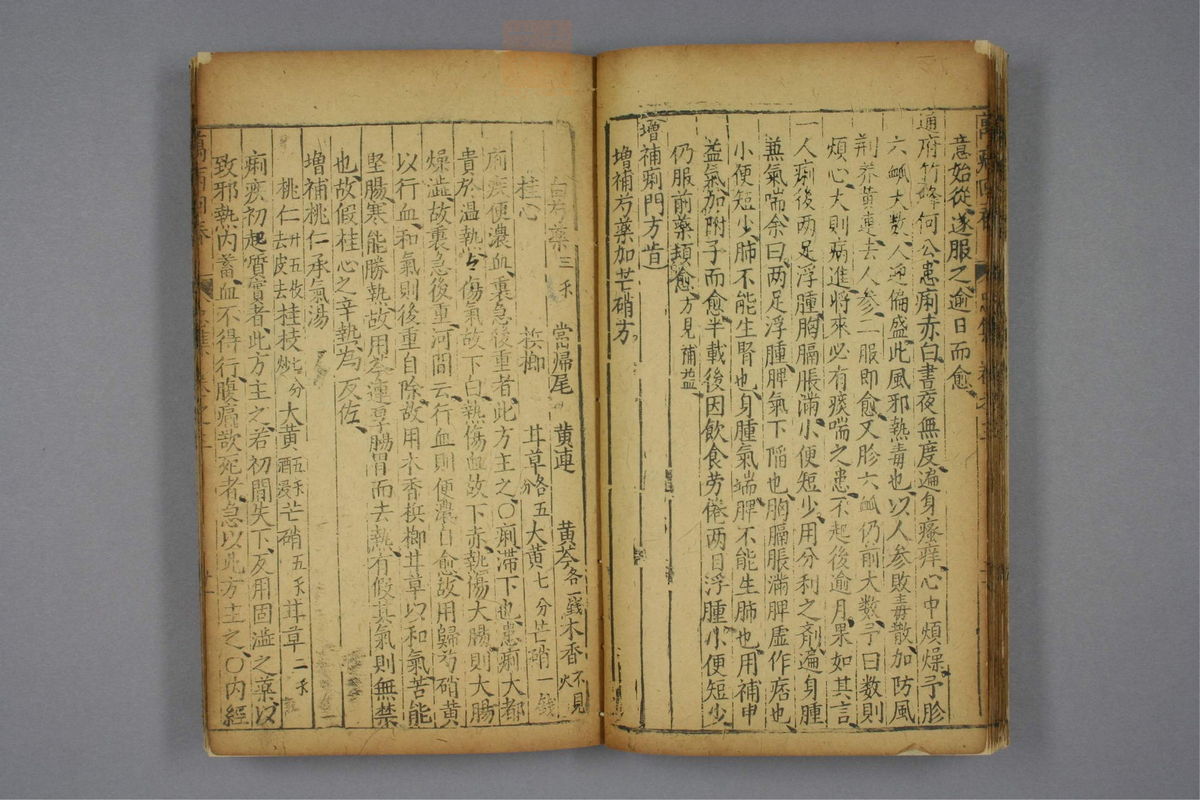 意始從、遂服之、逾日而愈、
通府竹峰何公患痢赤白、晝夜無度、遍身瘙痒、心中煩燥、予胗
六衇大数、人迎偏盛、此風邪熱毒也、以人参敗毒散、加防風
荆芥黄連、去人参、二服即愈、又胗六衇仍前大数、予曰、数則
煩心、大則病進、將來必有痰喘之患、不起、後逾月、果如其言、
一人痢後、两足浮腫、胸膈脹滿、小便短少、用分利之剤、遍身腫
兼氣喘、余曰、两足浮腫、脾氣下陥也、胸膈脹滿、脾虚作痞也、
小便短少、肺不能生腎也、身腫氣喘、脾不能生肺也、用補中
益氣、加附子而愈、半載後、因飲食劳倦、两目浮腫、小便短少、
仍服前藥、頻愈、方見補益、
増補痢門方昔
増補芍藥加芒硝方、
白芍藥三 當歸尾 黄連 黄芩各一錢 木香不見火
桂心 梹榔 甘草各五分 大黄七分 芒硝一錢
痢疾便濃血、裏急後重者、此方主之、○痢滞下也、患痢大都
貴於温熱、傷氣、故下白、熱傷血、故下赤、熱傷大腸、則大腸
燥澁、故裏急後重、河間云、行血則便濃自愈、故用歸芍硝黄
以行血、和氣則後重自除、故用木香梹榔甘草以和氣、苦能
堅腸、寒能勝熱、故用芩連厚腸胃而去熱、有假其氣則無禁
也、故假桂心之辛熱為反佐、
増補桃仁承氣湯
桃仁廿五枚去皮去 桂枝七分炒 大黄五分酒浸 芒硝五分 甘草二分
痢疾初起質實者、此方主之、若初間失下、反用固澁之藥、以
致邪熱内蓄、血不得行、腹痛欲死者、急以此方主之、○内經